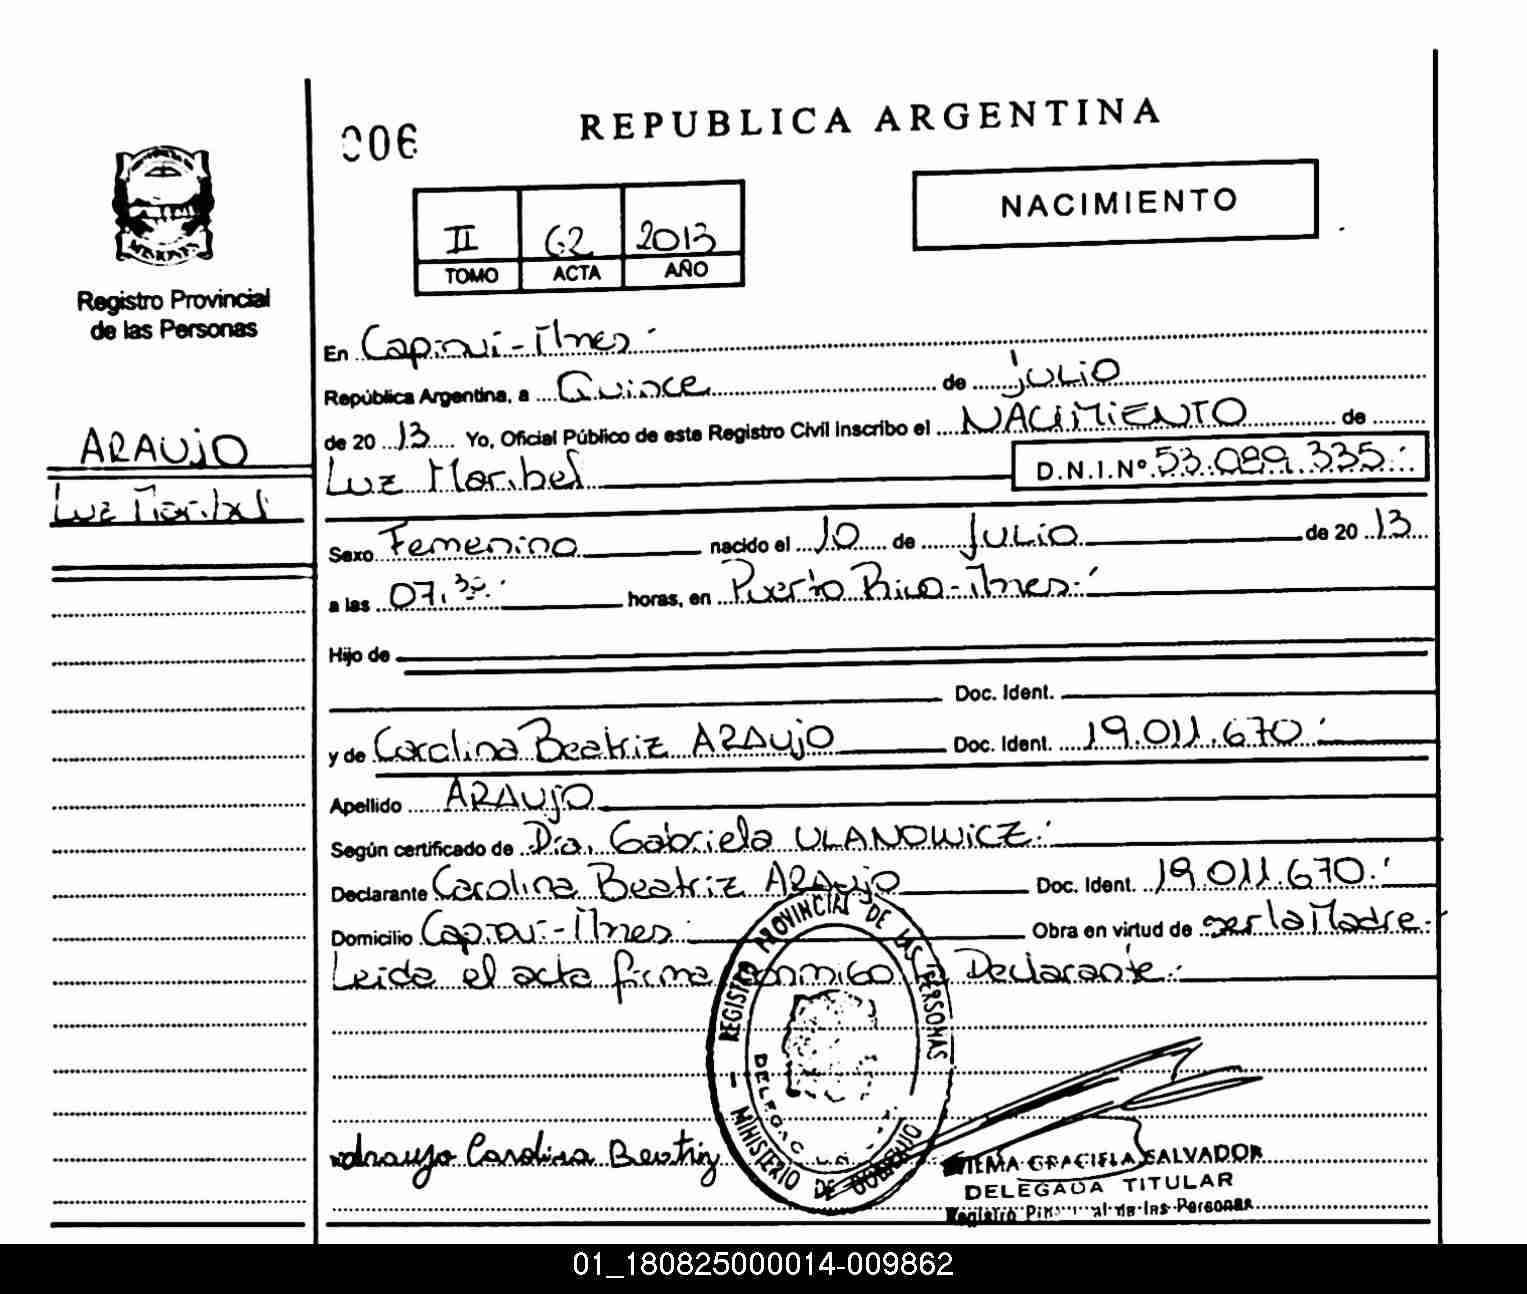 006
REPUBLICA ARGENTINA
NACIMIENTO
II 62 2013
TOMO ACTA AÑO
MISIONES
Registro Provincial
de las Personas
ARAUJO
Luz Maribel
En Capioví - Mnes
República Argentina, a Quince de JULIO
de 20 13 Yo, Oficial Público de este Registro Civil Inscribo el NACIMIENTO de
Luz Maribel D.N.I.Nº 53.089.335
Sexo Femenino nacido el 10 de JULIO de 20 13
a las 07.30 horas, en Puerto Rico - Mnes.
Hijo de
Doc. Ident.
y de Carolina Beatriz ARAUJO Doc. Ident. 19.011.670
Apellido ARAUJO
Según certificado de Dra. Gabriela ULANOWICZ.
Declarante Carolina Beatriz ARAUJO Doc. Ident. 19.011.670.
Domicilio Capioví - Mnes Obra en virtud de ser la Madre.
Leida el acta firma conmigo Declarante.
REGISTRO PROVINCIAL DE LAS PERSONAS
MINISTERIO DE GOBIERNO
Araujo Carolina Beatriz
GRACIELA SALVADOR
DELEGADA TITULAR
Registro Provincial de las Personas
01_180825000014-009862